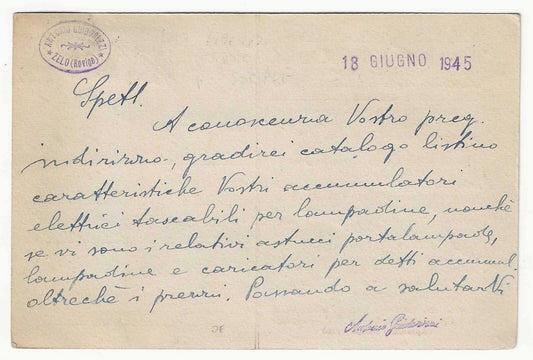 ANTONIO
ZELO (Rovigo)
18 GIUGNO 1945
Spett.
A conoscenza Vostro preg.
indirizzo, gradirei catalogo listino
caratteristiche Vostri accumulatori
elettrici tascabili per lampadine, nonchè
se vi sono i relativi astucci portalampade,
lampadine e caricatori per detti accumul.
oltrechè i prezzi. Passando a salutarVi
Antonio